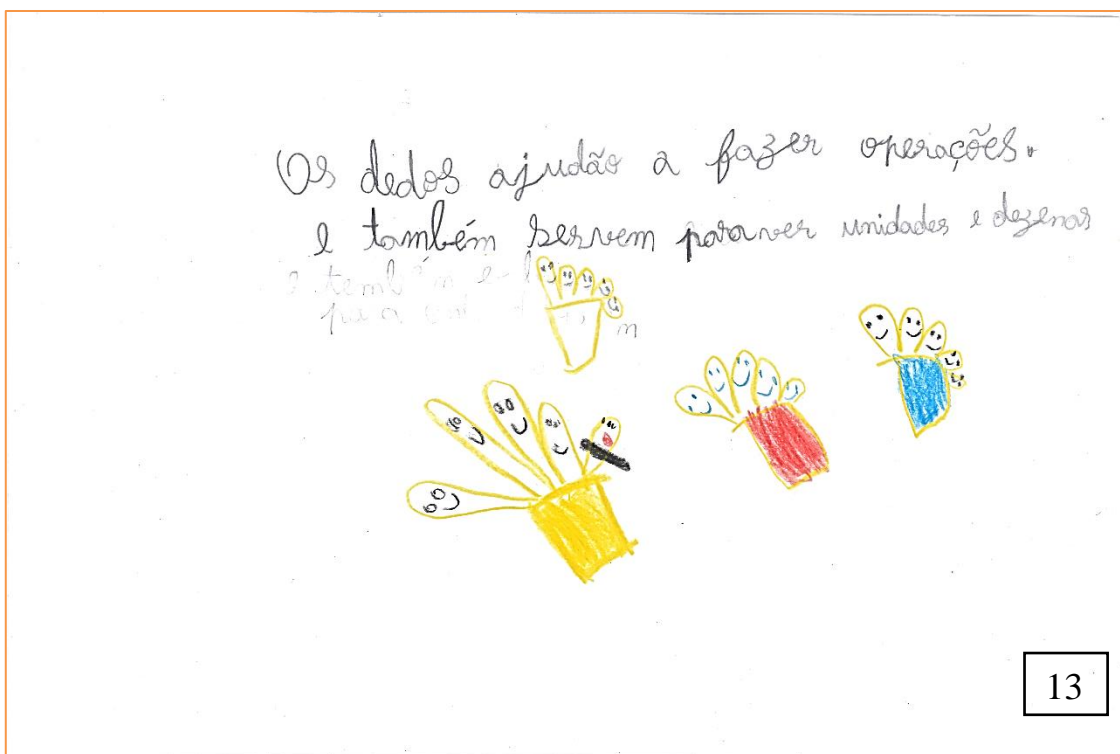 Os dedos ajudão a fazer operações.
e também servem para ver unidades e dezenas
13